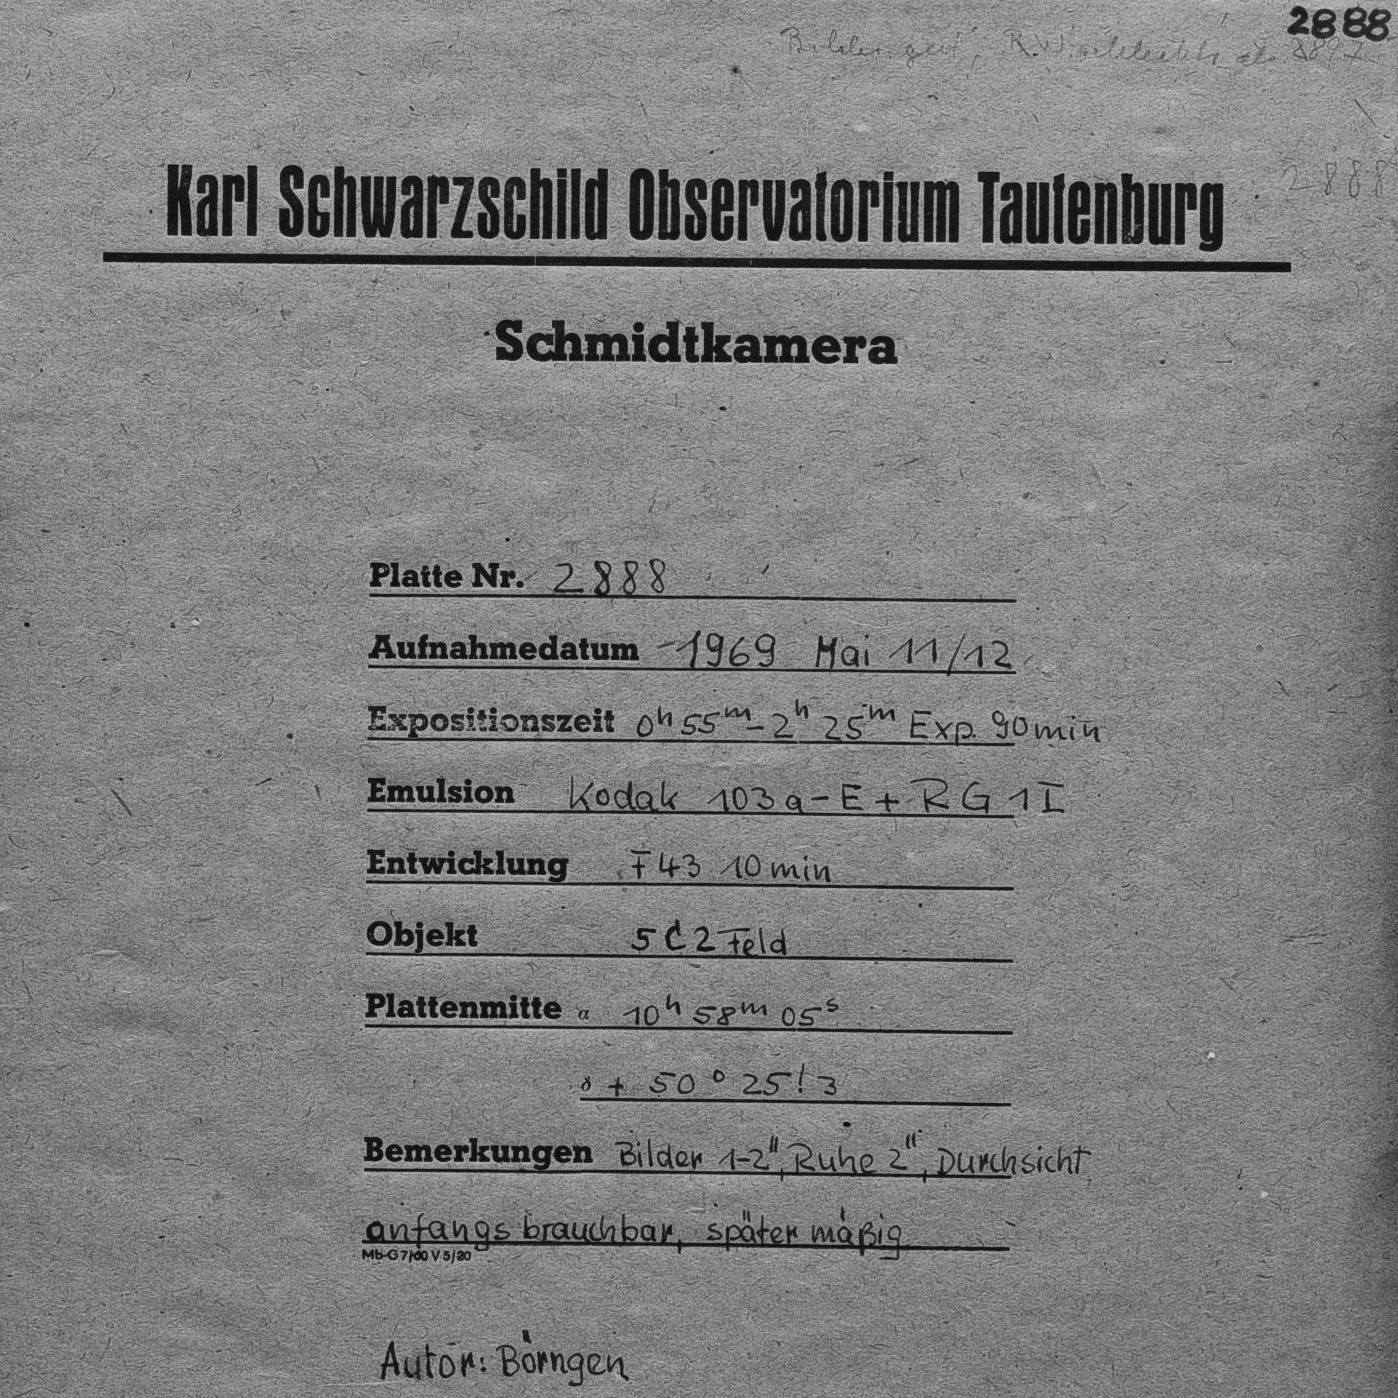 2888
Bilder gut, R.W.
Karl Schwarzschild Observatorium Tautenburg
2888
Schmidtkamera
Platte Nr. 2888
Aufnahmedatum 1969 Mai 11/12
Expositionszeit 0h 55m – 2h 25m Exp. 90min
Emulsion Kodak 103a-E + RG1I
Entwicklung F43 10min
Objekt 5C2 Feld
Plattenmitte α 10h 58m 05s
δ + 50° 25!3
Bemerkungen Bilder 1-2", Ruhe 2", Durchsicht
anfangs brauchbar, später mäßig
Mb-G 7/60 V 5/20
Autor: Börngen